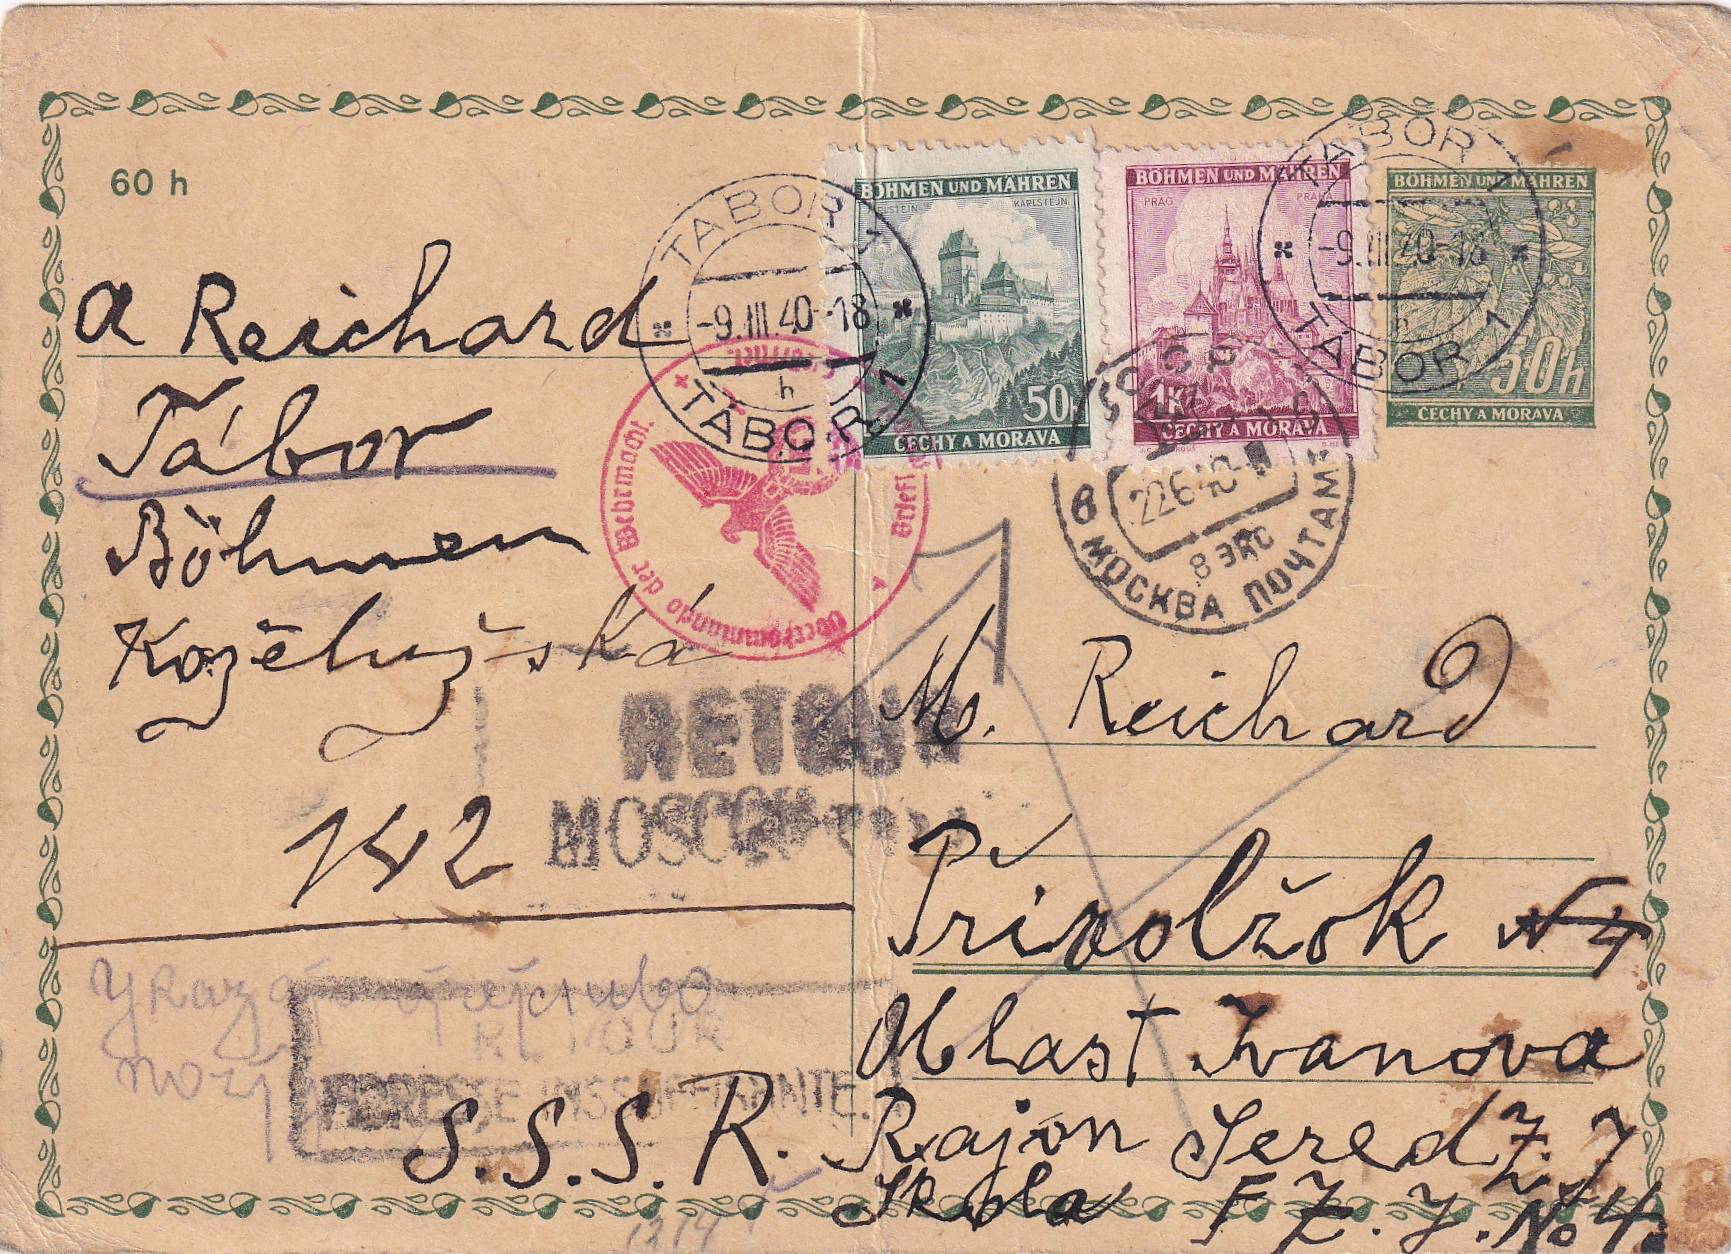 60 h
BÖHMEN UND MÄHREN
KARLSTEIN KARLSTEJN
50 h
ČECHY A MORAVA
BÖHMEN UND MÄHREN
PRAG PRAHA
1K
ČECHY A MORAVA
BÖHMEN UND MÄHREN
50h
ČECHY A MORAVA
TÁBOR 1
-9.III.40-18
h
TÁBOR 1
TÁBOR 1
-9.III.40-18
h
TÁBOR 1
Oberkommando der Wehrmacht
СССР
22 6 40
8 ЭКС
МОСКВА ПОЧТАМТ
A Reichard
Tábor
Böhmen
Koželužská
142
RETOUR
MOSCOU
RETOUR
ADRESSE INSSUFFISANTE.
M. Reichard
Privolžsk N 4
Oblast Ivanova
S.S.S.R. Rajon Sered
Skola F Z. Y. No 4
1314